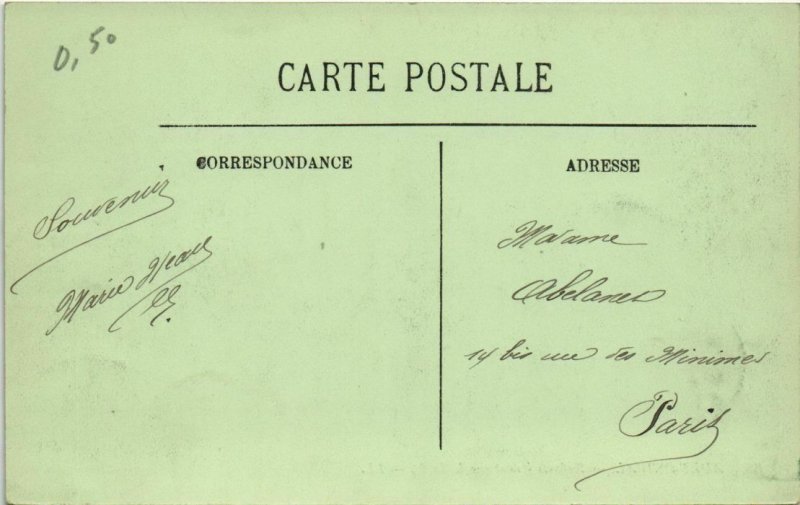 0,50
CARTE POSTALE
CORRESPONDANCE
Souvenir
Marie
ADRESSE
Madame
Abelanet
14 bis rue des Minimes
Paris